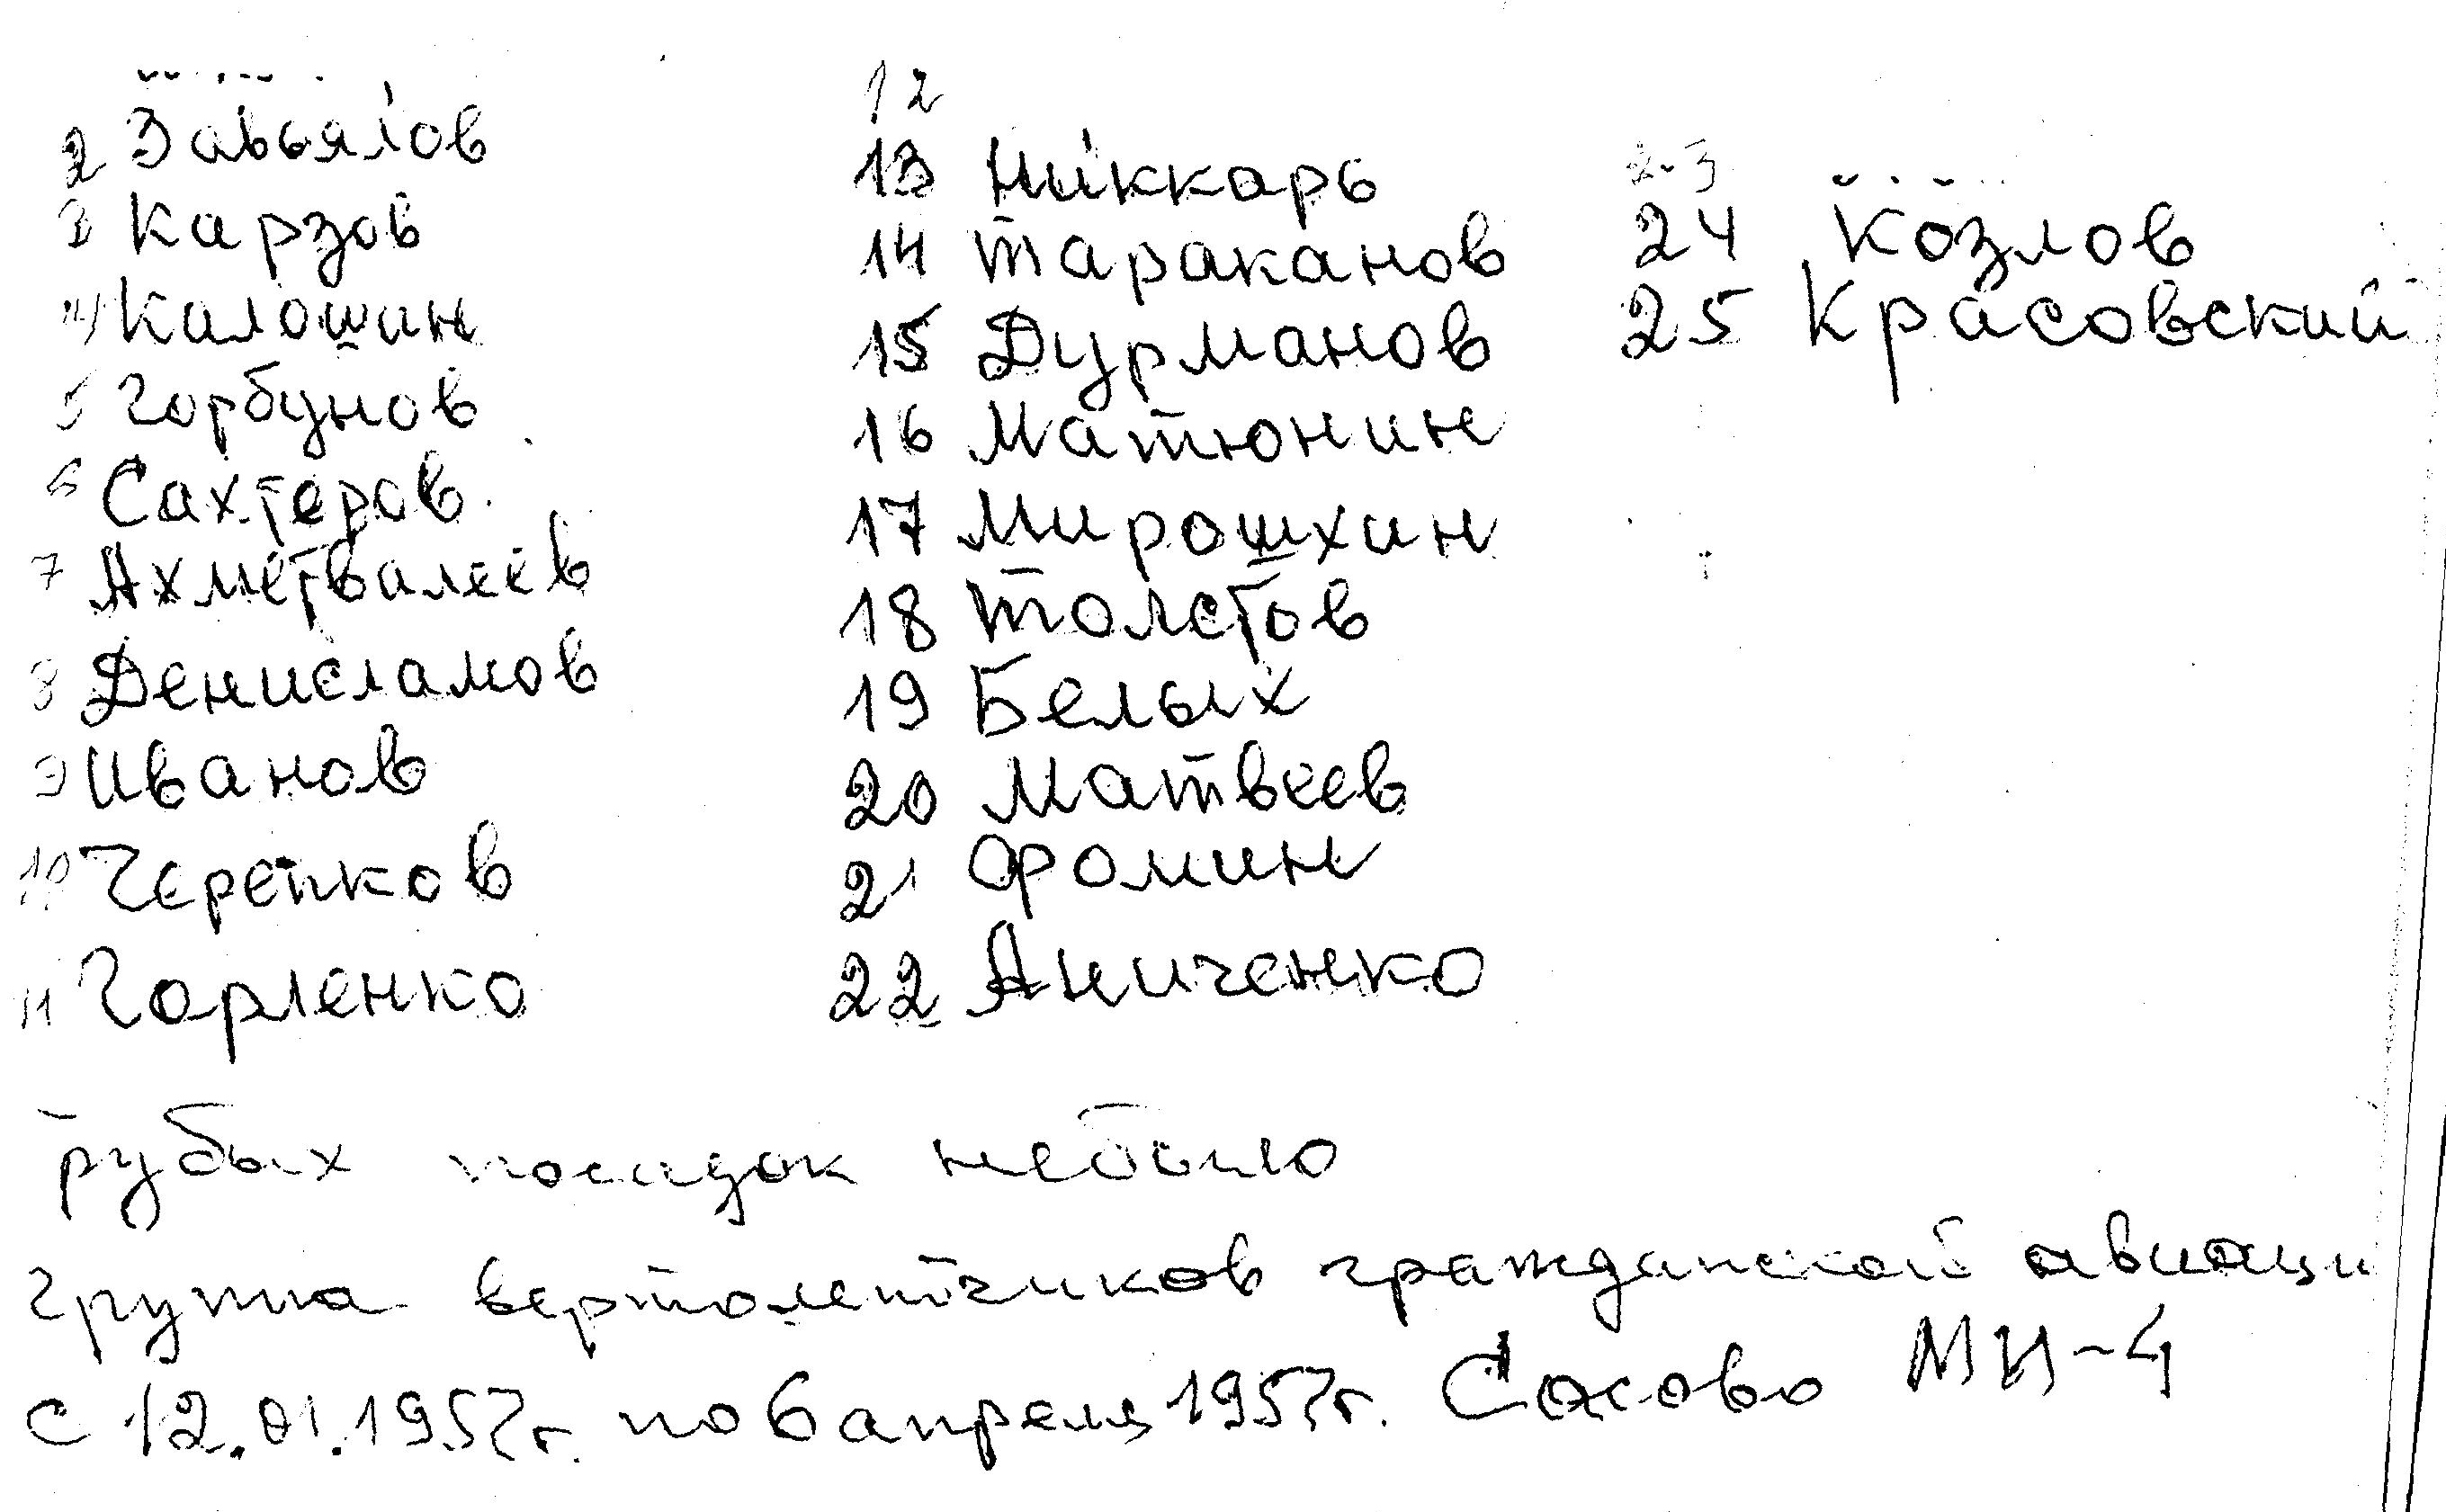 2 Завьялов
3 Карзов
4 Калошин
5 Горбунов
6 Сахтеров
7 Ахметвалеев
8 Денисламов
9 Иванов
10 Черепков
11 Горленко
12
13 Никкарь
14 Тараканов
15 Дурманов
16 Матюнин
17 Мирошхин
18 Толстов
19 Белых
20 Матвеев
21 Фомин
22 Аниченко
23
24 Козлов
25 Красовский
Грубых посадок небыло
Группа вертолетчиков гражданской авиаци
с 12.01.1957г. по 6 апреля 1957г. Сасово МИ-4